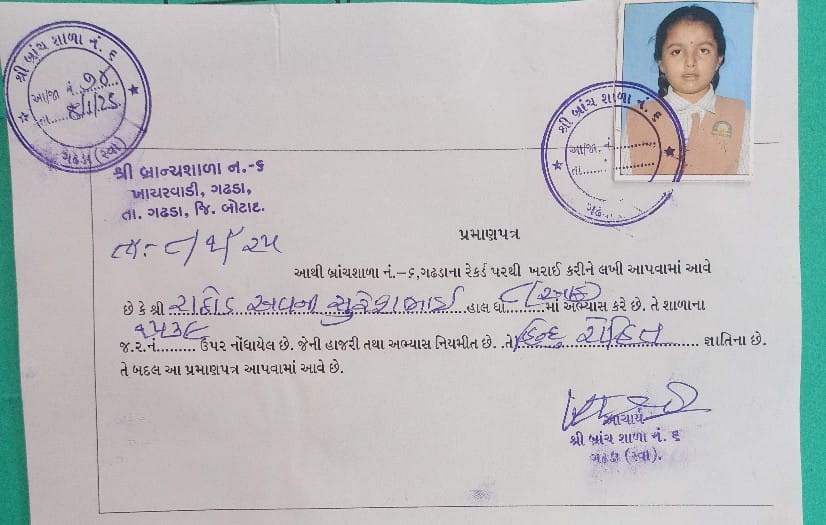 શ્રી બ્રાંચ શાળા નં. ૬
આ/જા નં. ૭૦
તા. ૮/૧/25
ગઢડા (સ્વા)
શ્રી બ્રાંચ શાળા નં. ૬
આ/જા. નં.............
તા.............
ગઢ
શ્રી બ્રાન્ચશાળા ન.-૬
ખાચરવાડી, ગઢડા,
તા. ગઢડા, જિ. બોટાદ.
પ્રમાણપત્ર
આથી બ્રાંચશાળા નં.-૬,ગઢડાના રેકર્ડ પરથી ખરાઈ કરીને લખી આપવામાં આવે
છે કે શ્રી રાઠોડ સુરેશભાઈ હાલ ધો ૮ (આઠ) માં અભ્યાસ કરે છે. તે શાળાના
જ.ર.નં......... ઉપર નોંધાયેલ છે. જેની હાજરી તથા અભ્યાસ નિયમીત છે. તે હિન્દુ જ્ઞાતિના છે.
તે બદલ આ પ્રમાણપત્ર આપવામાં આવે છે.
આચાર્ય
શ્રી બ્રાંચ શાળા નં. ૬
ગઢડા (સ્વા).